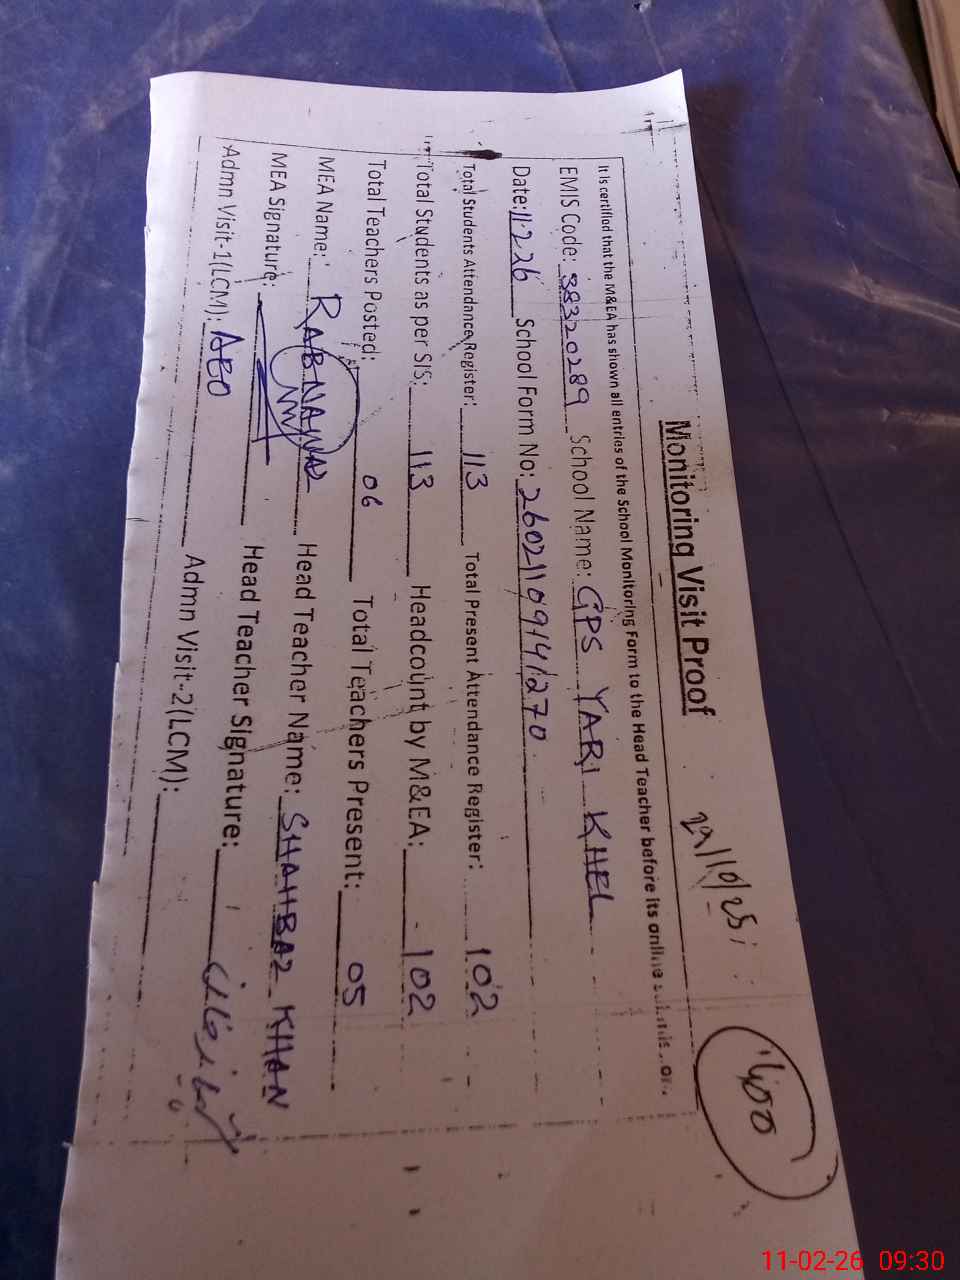 Monitoring Visit Proof
29/10/25
400
It is certified that the M&EA has shown all entries of the School Monitoring Form to the Head Teacher before its online
EMIS Code: 38320289 School Name: GPS YARI KHEL
Date: 11.2.26 School Form No: 26021109141270
Total Students Attendance Register: 113 Total Present Attendance Register: 102
Total Students as per SIS: 113 Headcount by M&EA: 102
Total Teachers Posted: 06 Total Teachers Present: 05
MEA Name: RAB NAWAZ Head Teacher Name: SHAHBAZ KHAN
MEA Signature: Head Teacher Signature:
Admn Visit-1(LCM): ABO Admn Visit-2(LCM):
11-02-26 09:30